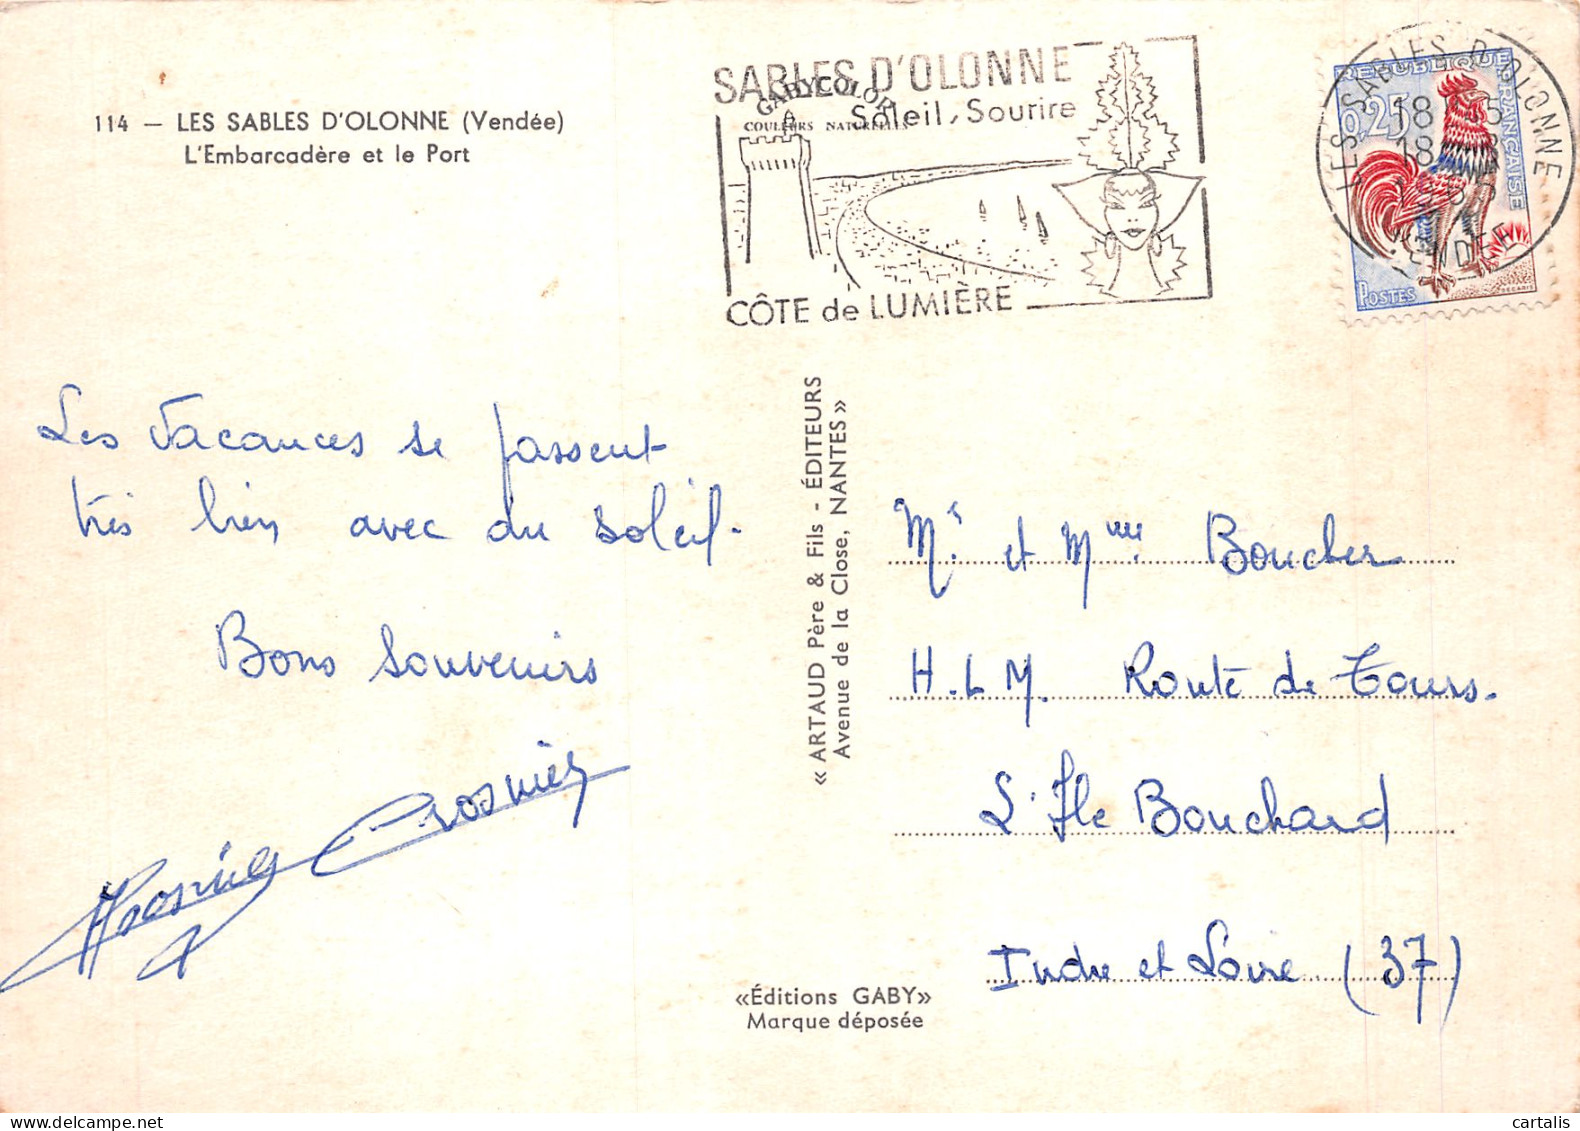 114 — LES SABLES D'OLONNE (Vendée)
L'Embarcadère et le Port
SABLES D'OLONNE
Soleil, Sourire
GABYCOLOR
COULEURS NATURELLES
CÔTE de LUMIÈRE
LES SABLES D'OLONNE
VENDÉE
RÉPUBLIQUE FRANÇAISE
0,25
POSTES
DECARIS
Les Vacances se passent
très bien avec du soleil.
Bons Souvenirs
Crosnier
« ARTAUD Père & Fils - ÉDITEURS
Avenue de la Close, NANTES »
Mr et Mme Boucher
H.L.M. Route de Tours.
L'Ile Bouchard
Indre et Loire (37)
«Éditions GABY»
Marque déposée
cartalis